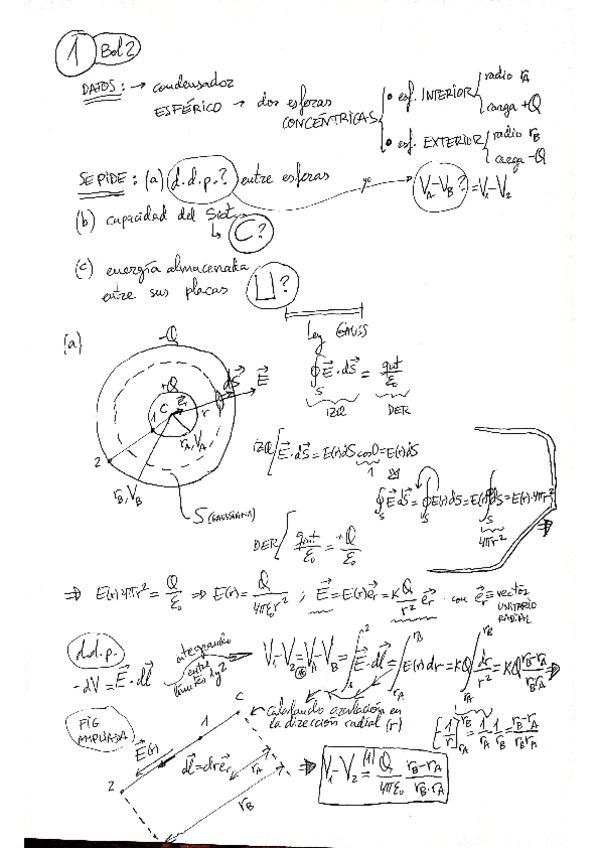 1 Bol 2
DATOS: → condensador
ESFÉRICO → dos esferas
CONCÉNTRICAS
• esf. INTERIOR radio r_A
carga +Q
• esf. EXTERIOR radio r_B
carga -Q
SE PIDE: (a) d.d.p.? entre esferas V_A-V_B? = V_1-V_2
(b) capacidad del
↳ C?
(c) energía almacenada
entre sus placas U?
Ley GAUSS
(a)
-Q
+Q
dS⃗ E⃗
C e⃗_r r
1
r_A, V_A
2
r_B, V_B
S (GAUSSIANA)
∮_S E⃗·dS⃗ = q_int/ε_0
IZQ DER
IZQ/ E⃗·dS⃗ = E(r)dS cos0 = E(r)dS
1
∮_S E⃗dS⃗ = ∮_S E(r)dS = E(r)∮_S dS = E(r)·4πr²
4πr²
DER/ q_int/ε_0 = +Q/ε_0
⇒ E(r)4πr² = Q/ε_0 ⇒ E(r) = Q/4πε_0r² ; E⃗ = E(r)e⃗_r = KQ/r² e⃗_r · con e⃗_r ≡ vector
UNITARIO
RADIAL
d.d.p.
-dV = E⃗·dl⃗
integrando
entre
límites 1 y 2
V_1-V_2 = V_A-V_B = ∫_1^2 E⃗·dl⃗ = ∫_{r_A}^{r_B} E(r)dr = KQ ∫_{r_A}^{r_B} dr/r² = KQ r_B-r_A/r_B r_A ⇒
Calculando circulación en
la dirección radial (r)
[-1/r]_{r_A}^{r_B} = 1/r_A - 1/r_B = r_B-r_A/r_B r_A
FIG
AMPLIADA
C
1
E⃗(r)
2
dl⃗ = dr e⃗_r
r_A
r_B
⇒ V_1-V_2 = Q/4πε_0 r_B-r_A/r_B·r_A